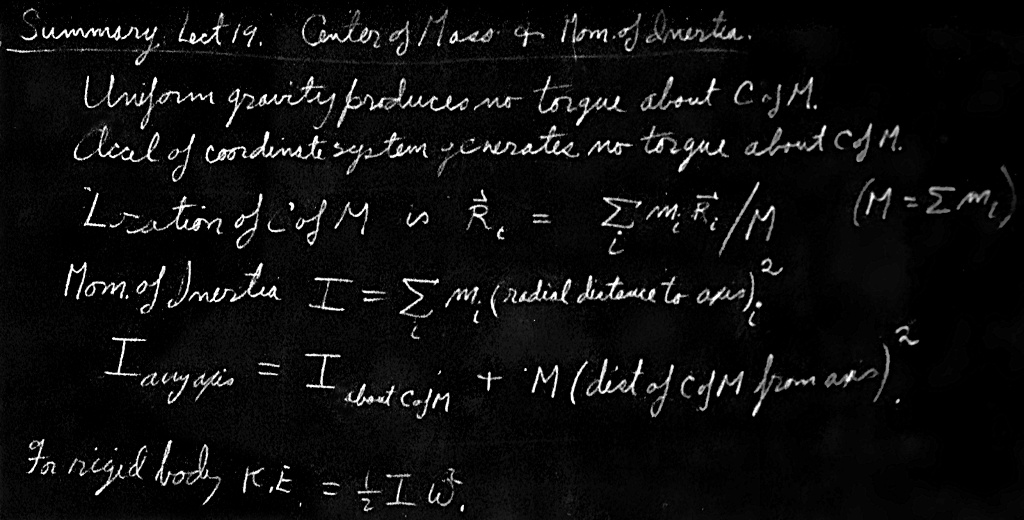 Summary, Lect 19. Center of Mass & Mom. of Inertia.
Uniform gravity produces no torque about C of M.
Accel of coordinate system generates no torque about C of M.
Location of C of M is R⃗_c = Σ_i m_i R⃗_i / M (M = Σ m_i)
Mom. of Inertia I = Σ_i m_i (radial distance to axis)_i²
I_any axis = I_about C of M + M (dist of C of M from axis)².
For rigid body K.E. = ½ I ω².